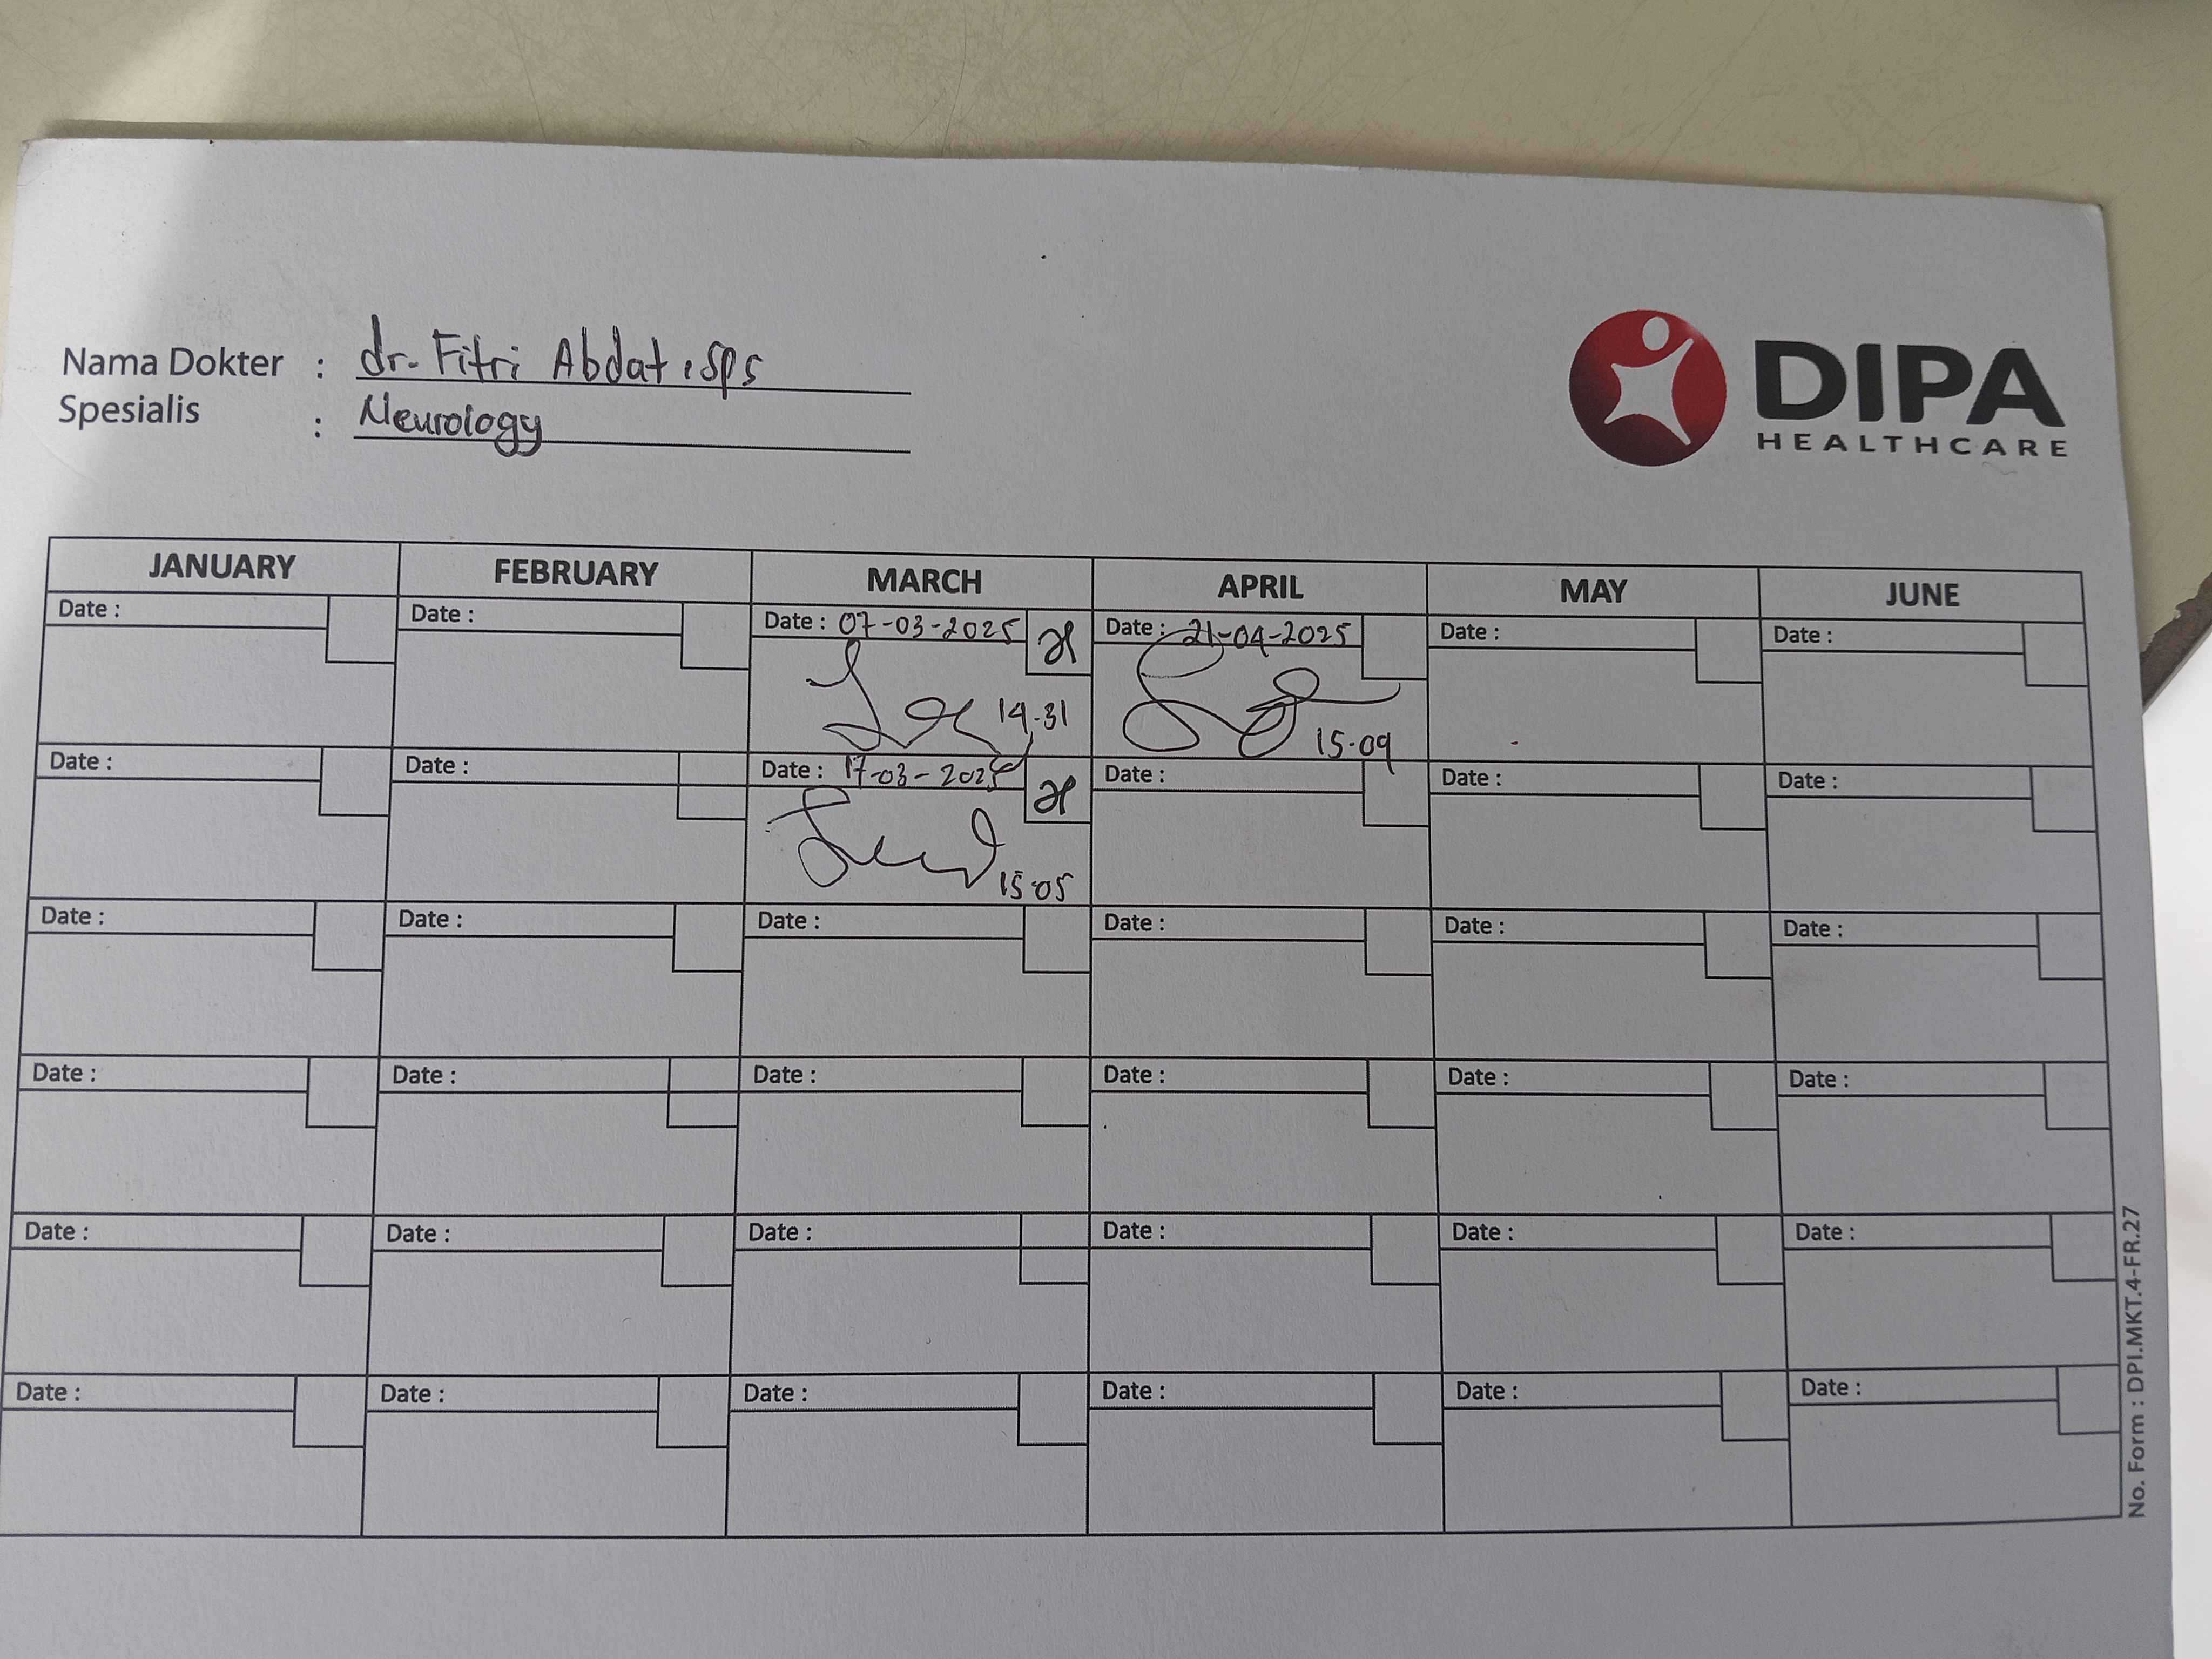 Nama Dokter : dr. Fitri Abdat, Sps
Spesialis : Neurology
DIPA
HEALTHCARE
JANUARY FEBRUARY MARCH APRIL MAY JUNE
Date : Date : Date : 07-03-2025 Date : 21-04-2025 Date : Date :
14.31 15.09
Date : Date : Date : 17-03-2025 Date : Date : Date :
15.05
Date : Date : Date : Date : Date : Date :
Date : Date : Date : Date : Date : Date :
Date : Date : Date : Date : Date : Date :
Date : Date : Date : Date : Date : Date :
No. Form : DPI.MKT.4-FR.27